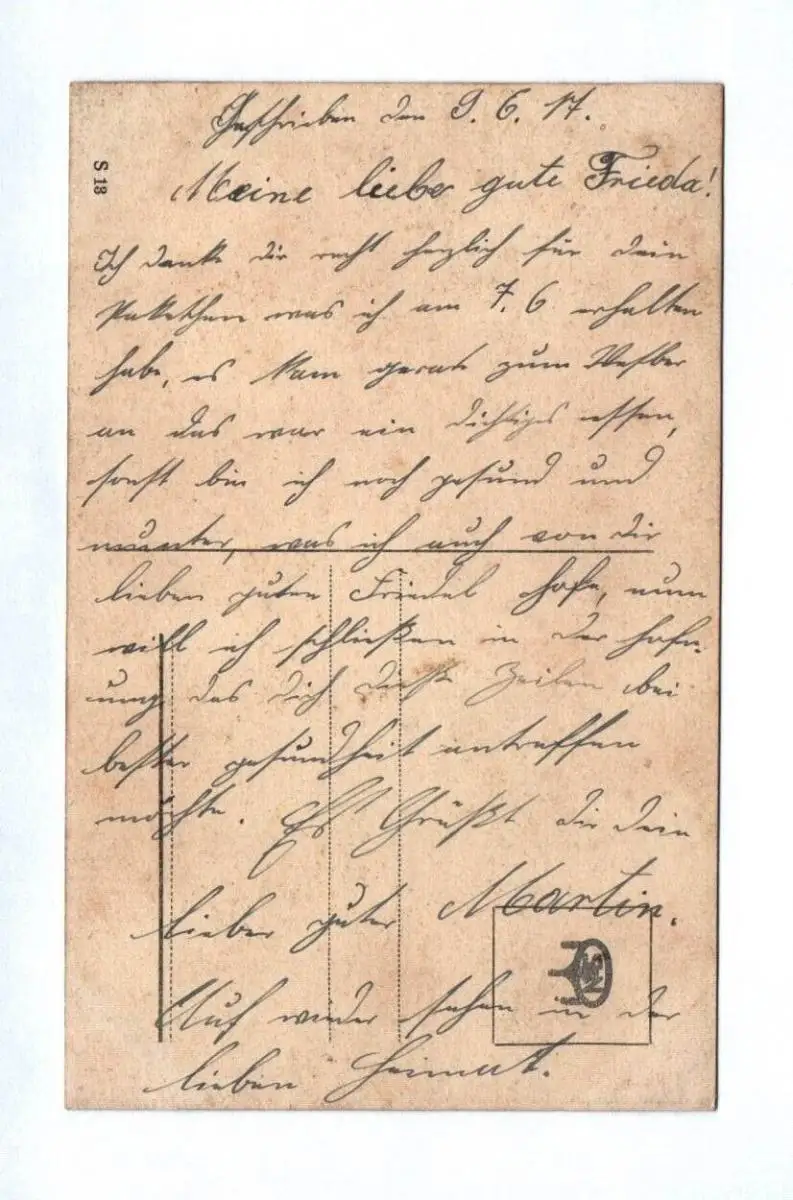 Geschrieben den 9. 6. 17.
S 13
Meine liebe gute Frieda!
Ich danke dir recht herzlich für dein
Paketchen was ich am 7. 6 erhalten
habe, es kam gerade zum Vesber
an das war ein dichtiges essen,
sonst bin ich noch gesund und
munter, was ich auch von dir
lieben guten Friedel hofe, nun
will ich schließen in der hofn-
ung das dich diese Zeilen bei
bester gesundheit antreffen
möchte. Es Grüßt dir dein
lieber guter Martin.
Auf wieder sehen in der
lieben Heimat.